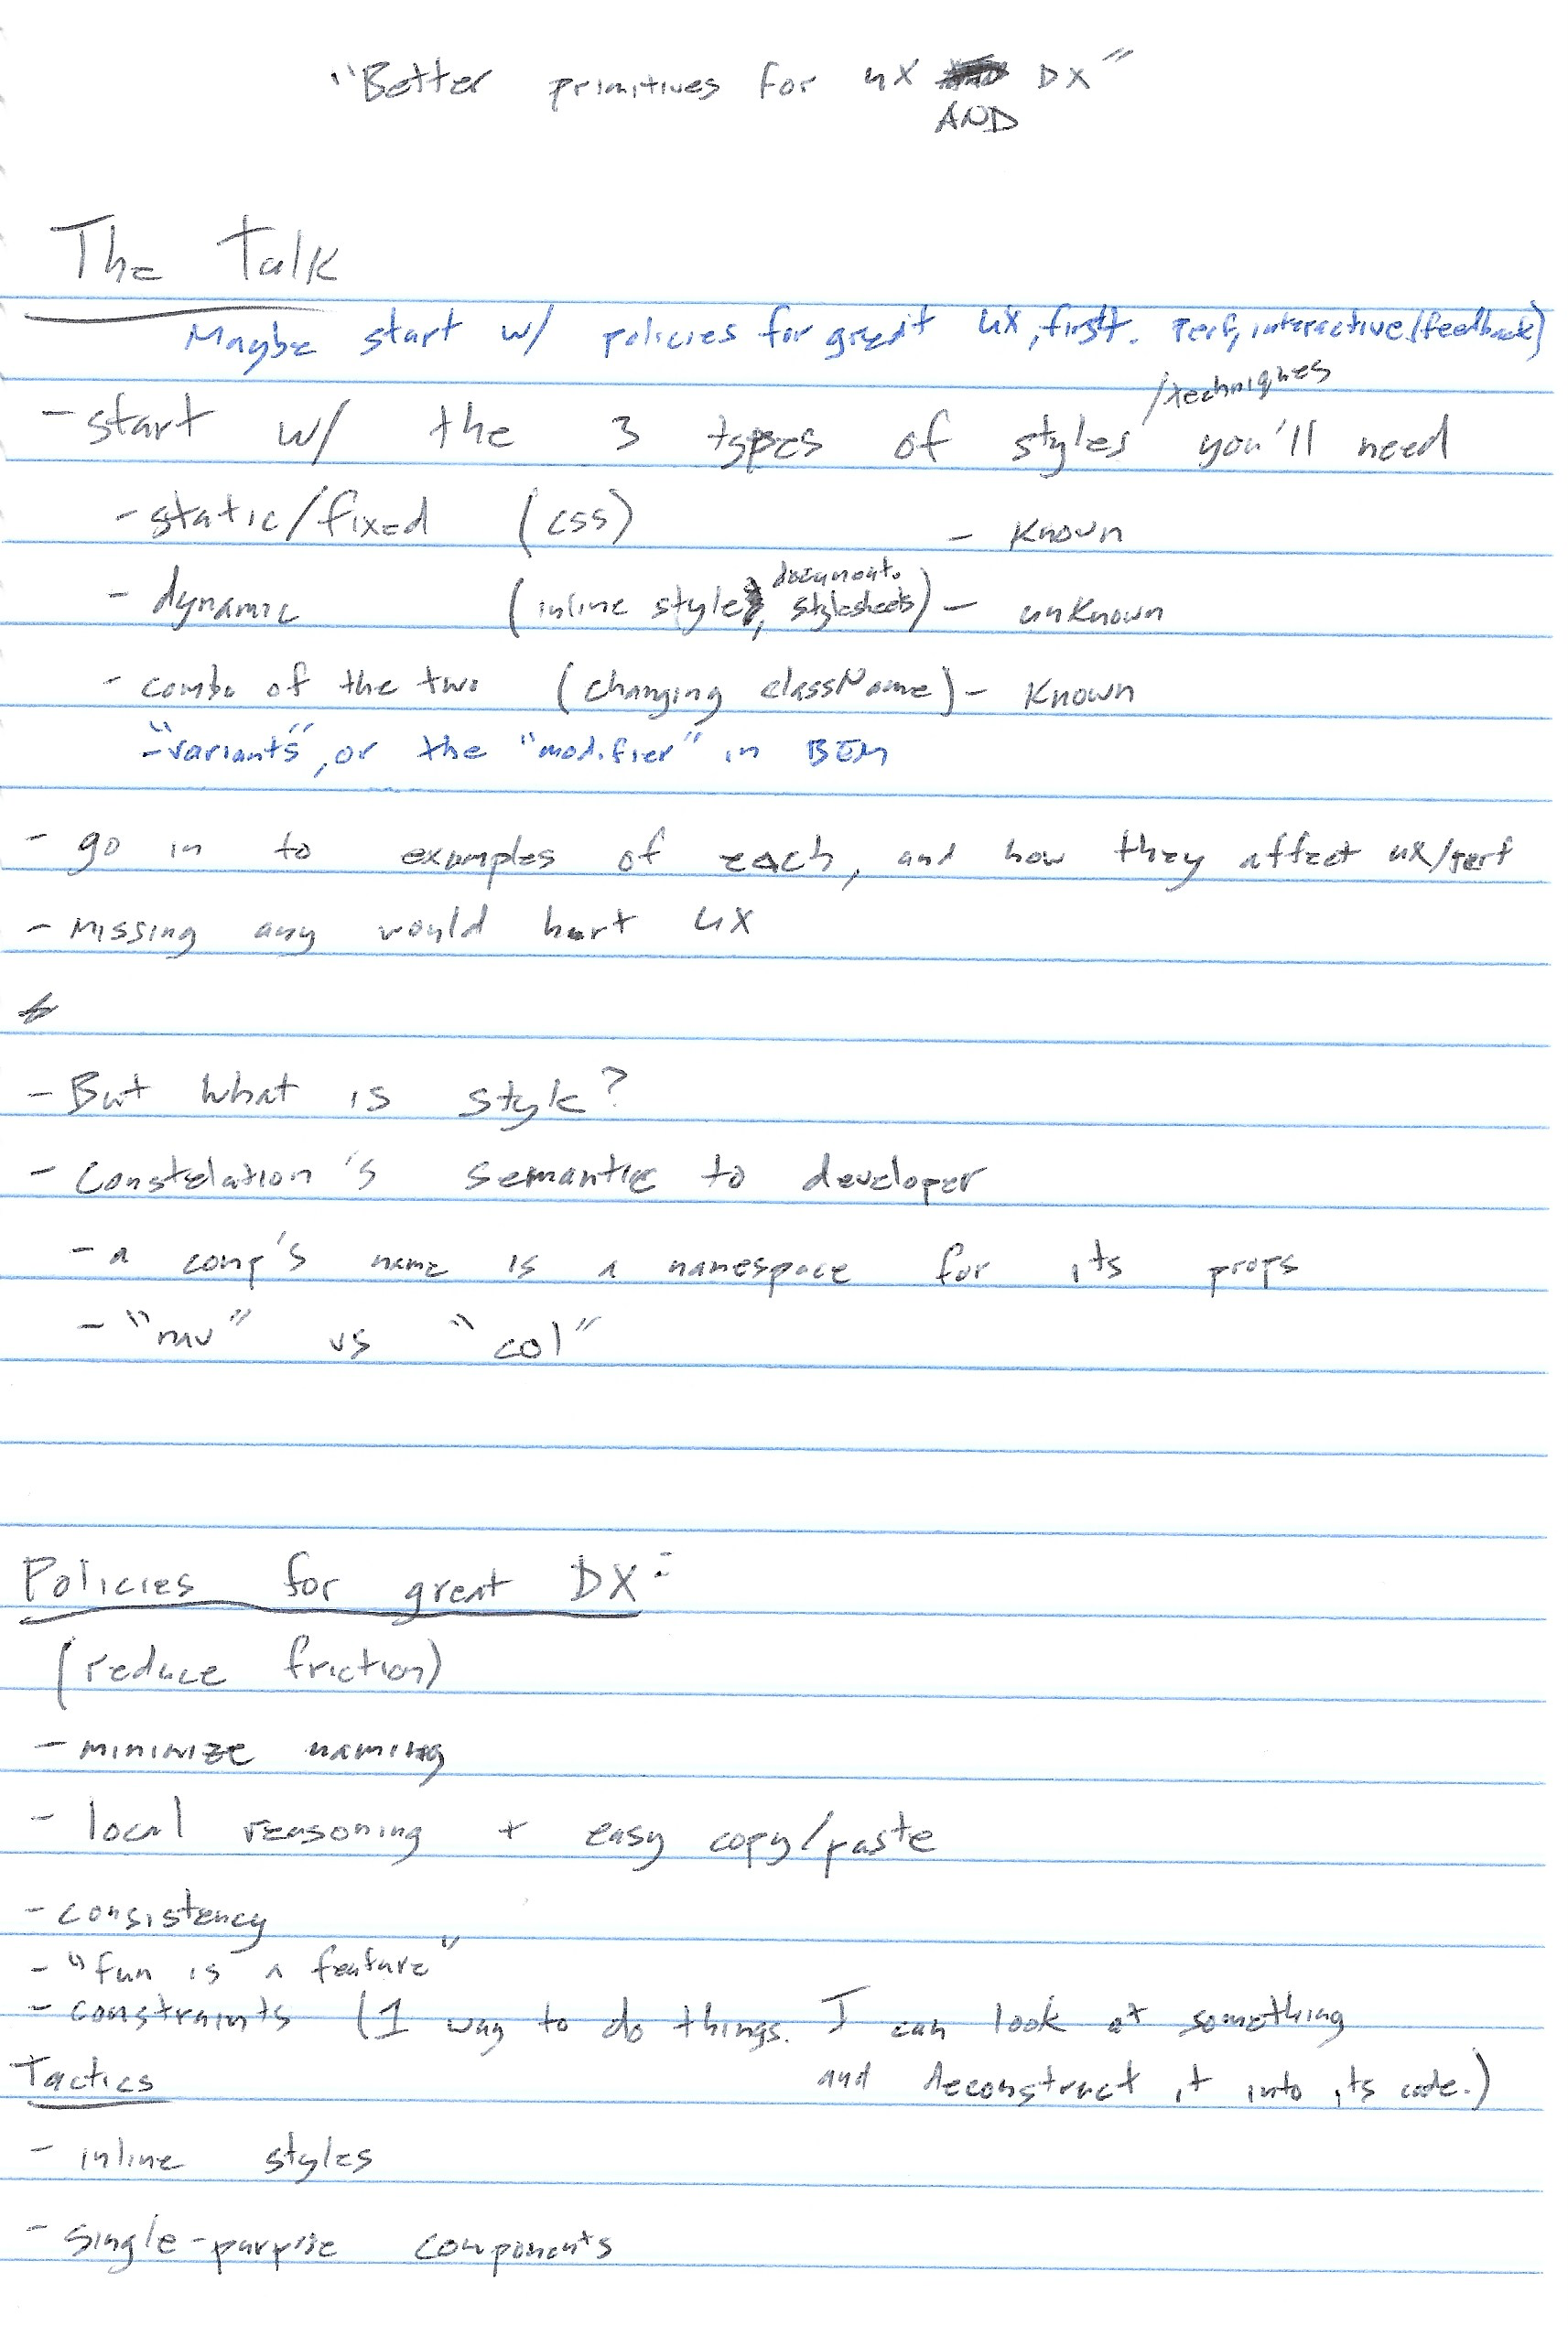 "Better primitives for UX AND DX"
The Talk
Maybe start w/ policies for great UX, first. Perf, interactive (feedback)
- start w/ the 3 types of styles/techniques you'll need
- static/fixed (css) - Known
- dynamic (inline style, document.stylesheets) - unknown
- combo of the two (changing className) - Known
- "variants", or the "modifier" in BEM
- go in to examples of each, and how they affect UX/perf
- Missing any would hurt UX
- But what is style?
- Constelation's semantic to developer
- a comp's name is a namespace for its props
- "nav" vs "col"
Policies for great DX:
(reduce friction)
- minimize naming
- local reasoning + easy copy/paste
- consistency
- "fun is a feature"
- constraints (1 way to do things. I can look at something
and deconstruct it into its code.)
Tactics
- inline styles
- single-purpose components